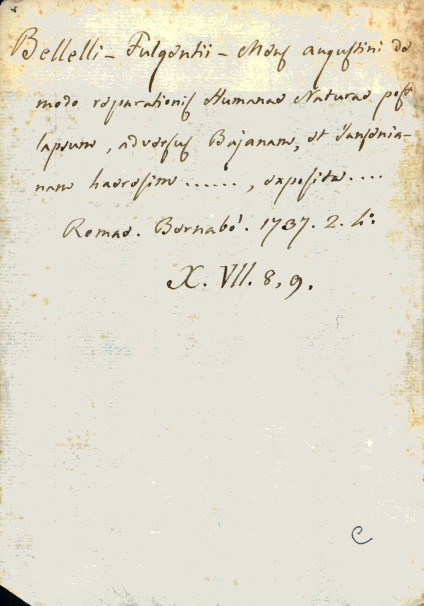 Bellelli - Fulgentii - Mens augustini de
modo reparationis Humanae Naturae post
lapsum, adversus Bajanam, et Jansenia-
nam haeresim ......, exposita ....
Romae. Bernabò. 1737. 2. 4°.
X. VII. 8, 9.
C